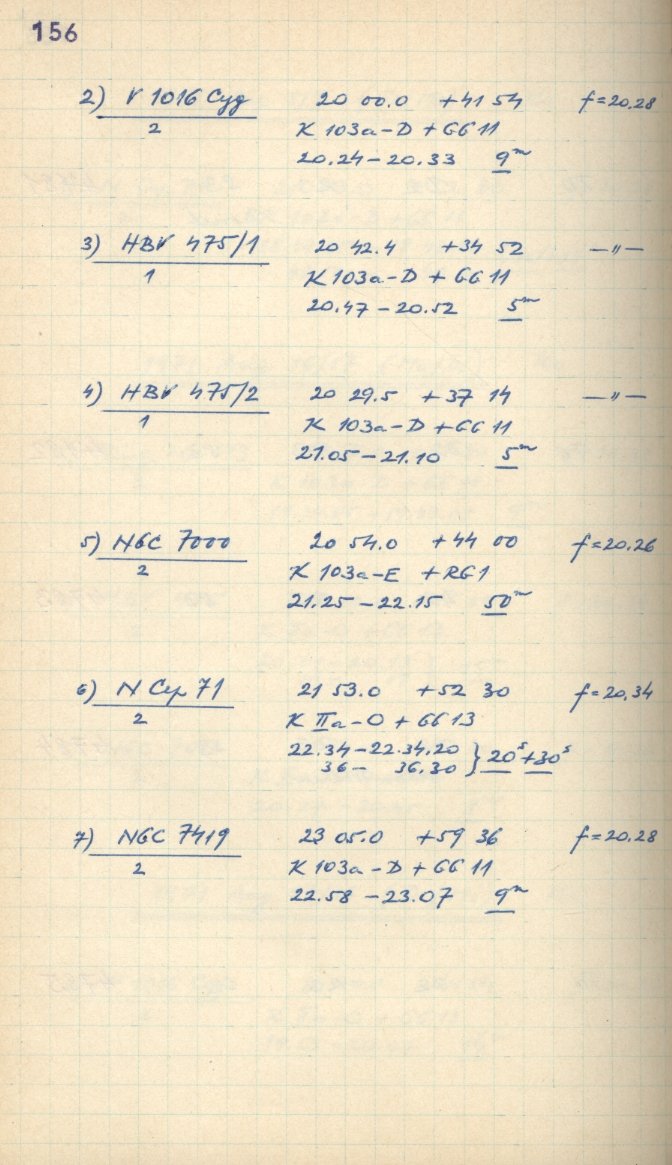 156
2) V 1016 Cyg 20 00.0 +41 54 f=20.28
2 K 103a-D + GG 11
20.24-20.33 9m
3) HBV 475/1 20 42.4 +34 52 —"—
1 K 103a-D + GG 11
20.47-20.52 5m
4) HBV 475/2 20 29.5 +37 14 —"—
1 K 103a-D + GG 11
21.05-21.10 5m
5) NGC 7000 20 54.0 +44 00 f=20.26
2 K 103a-E + RG1
21.25-22.15 50m
6) N Cep 71 21 53.0 +52 30 f=20.34
2 K IIa-O + GG 13
22.34-22.34.20 } 20s+30s
36- 36.30
7) NGC 7419 23 05.0 +59 36 f=20.28
2 K 103a-D + GG 11
22.58-23.07 9m